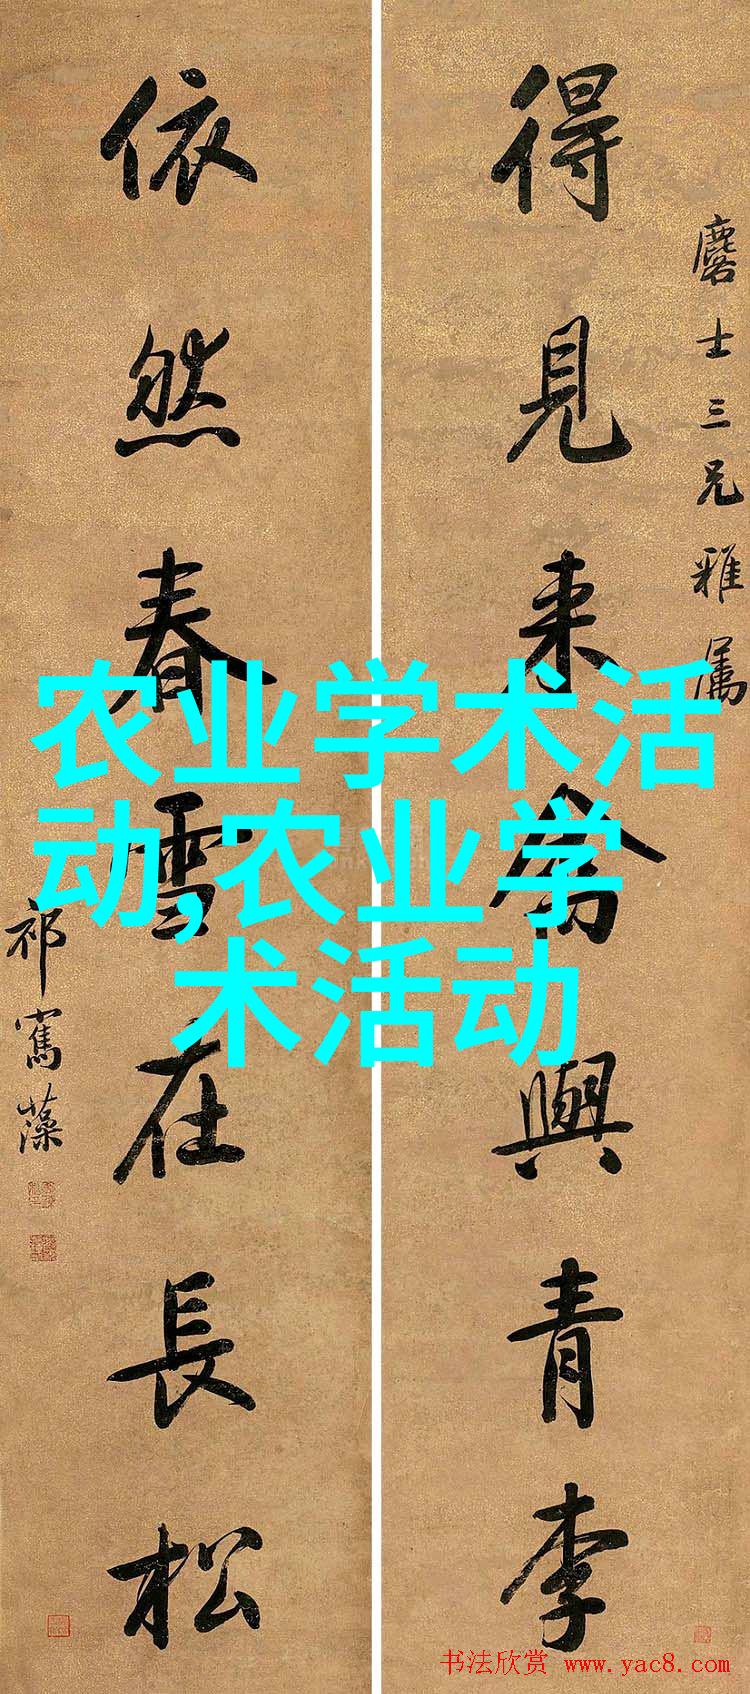 得見来禽與青李
麐士三兄雅属
依然春雪在長松
祁寯藻
农业学术活
动,农业学
术活动
书法欣赏 www.yac8.com